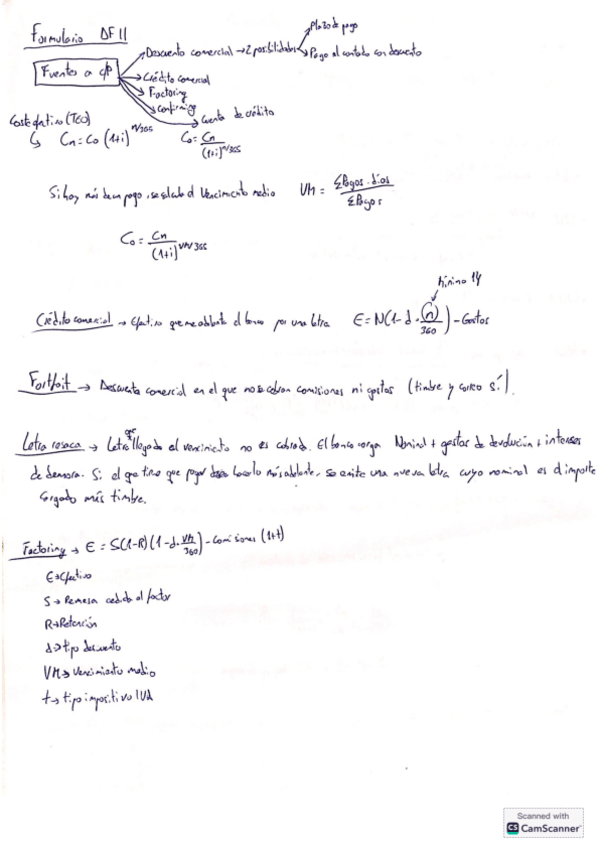 Formulario DF II
Plazo de pago
Descuento comercial → 2 posibilidades
Pago al contado con descuento
Fuentes a c/p
Crédito comercial
Factoring
Confirming
Cuenta de crédito
Coste efectivo (TEO)
↳ Cn = Co (1+i)^n/365    Co = Cn / (1+i)^n/365
Si hay más de un pago, se calcula el Vencimiento medio    VM = ΣPagos · días / ΣPagos
Co = Cn / (1+i)^VM/365
Mínimo 14
Crédito comercial → Efectivo que me adelanta el banco por una letra    E = N(1 - d · n/360) - Gastos
Forfait → Descuento comercial en el que no se cobran comisiones ni gastos (timbre y correo sí).
Letra resaca → Letra que llegado al vencimiento no es cobrada. El banco carga Nominal + gastos de devolución + intereses
de demora. Si el que tiene que pagar desea hacerlo más adelante, se emite una nueva letra cuyo nominal es el importe
cargado más timbre.
Factoring → E = S(1-R)(1-d · VM/360) - Comisiones (1+t)
E → Efectivo
S → Remesa cedida al factor
R → Retención
d → tipo descuento
VM → Vencimiento medio
t → tipo impositivo IVA
Scanned with
CS CamScanner